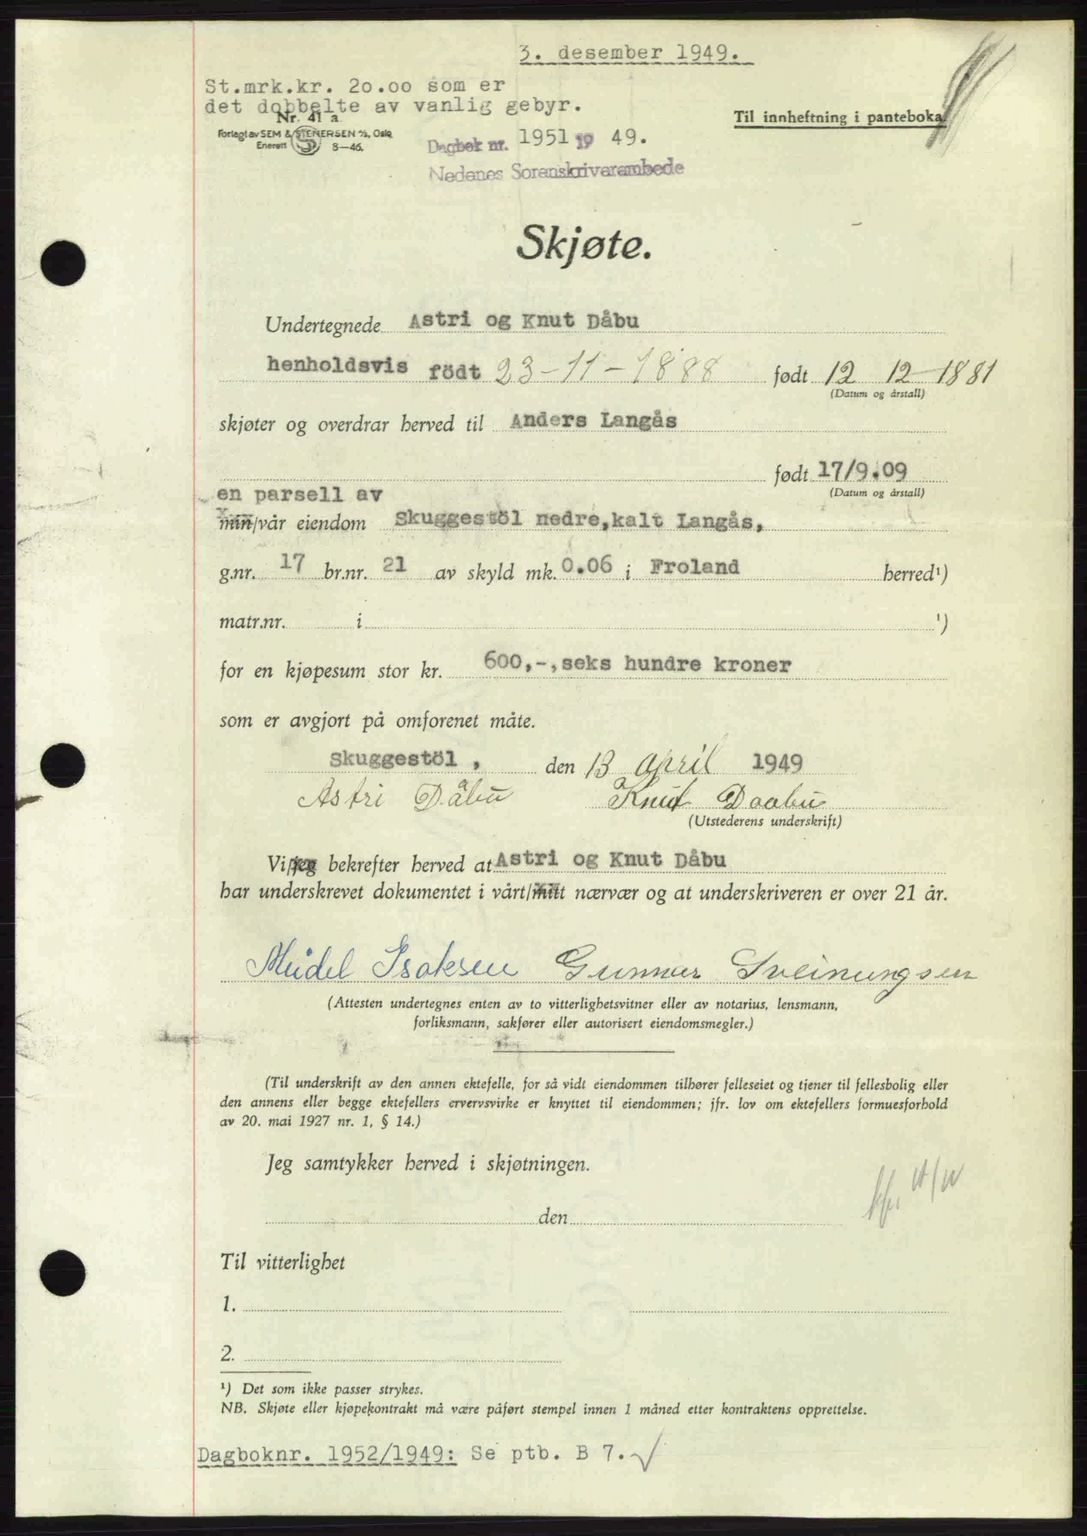 3. desember 1949.
St.mrk.kr. 20.00 som er
det dobbelte av vanlig gebyr.
Nr. 41 a
Til innheftning i panteboka.
Forlagt av SEM & STENERSEN A/S, Oslo
Enerett 8—46.
Dagbok nr. 1951 19 49.
Nedenes Sorenskriverembede
Skjøte.
Undertegnede Astri og Knut Dåbu
henholdsvis födt 23-11-1888 født 12 12-1881
(Datum og årstall)
skjøter og overdrar herved til Anders Langås
født 17/9.09
(Datum og årstall)
en parsell av
min/vår eiendom Skuggestöl nedre,kalt Langås,
g.nr. 17 br.nr. 21 av skyld mk. 0.06 i Froland herred¹)
matr.nr. i ¹)
for en kjøpesum stor kr. 600,-,seks hundre kroner
som er avgjort på omforenet måte.
Skuggestöl , den 13 april 1949
Astri Dåbu Knut Daabu
(Utstederens underskrift)
Vi/jeg bekrefter herved at Astri og Knut Dåbu
har underskrevet dokumentet i vårt/mitt nærvær og at underskriveren er over 21 år.
Meidel Isaksen Gunnar Sveinungsen
(Attesten undertegnes enten av to vitterlighetsvitner eller av notarius, lensmann,
forliksmann, sakfører eller autorisert eiendomsmegler.)
(Til underskrift av den annen ektefelle, for så vidt eiendommen tilhører felleseiet og tjener til fellesbolig eller
den annens eller begge ektefellers ervervsvirke er knyttet til eiendommen; jfr. lov om ektefellers formuesforhold
av 20. mai 1927 nr. 1, § 14.)
Jeg samtykker herved i skjøtningen.
den
Til vitterlighet
1.
2.
¹) Det som ikke passer strykes.
NB. Skjøte eller kjøpekontrakt må være påført stempel innen 1 måned etter kontraktens opprettelse.
Dagboknr. 1952/1949: Se ptb. B 7.